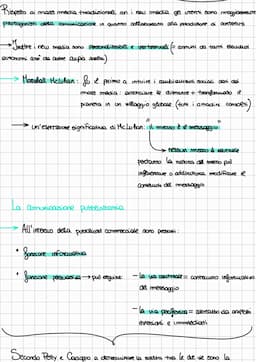 Rispetto ai mass media tradizionali, con i new media gli utenti sono maggiormente
protagonisti della comunicazione in quanto collaborano alla produzione di contenuti
→ Inoltre i new media sono e
autonomi
→ Marshall McLuhan: fu il primo a intuire i cambiamenti sociali dati dai
mass media: accorciare le distanze e trasformando il
pianeta in un villaggio globale (tutti i media connessi)
→ un'espressione significativa di McLuhan: il mezzo è il messaggio
→ nessun mezzo è neutrale
pertanto la natura del mezzo può
influenzare o addirittura modificare il
contenuto del messaggio
La comunicazione pubblicitaria
→ All'interno della pubblicità commerciale sono presenti:
• funzione informativa
• funzione persuasiva → può seguire
- la via centrale = contenuto informativo
del messaggio
- la via periferica = elementi da aspetti
esteriori e immediati
Secondo Petty e Cacioppo a determinare la scelta tra le due vie sono la